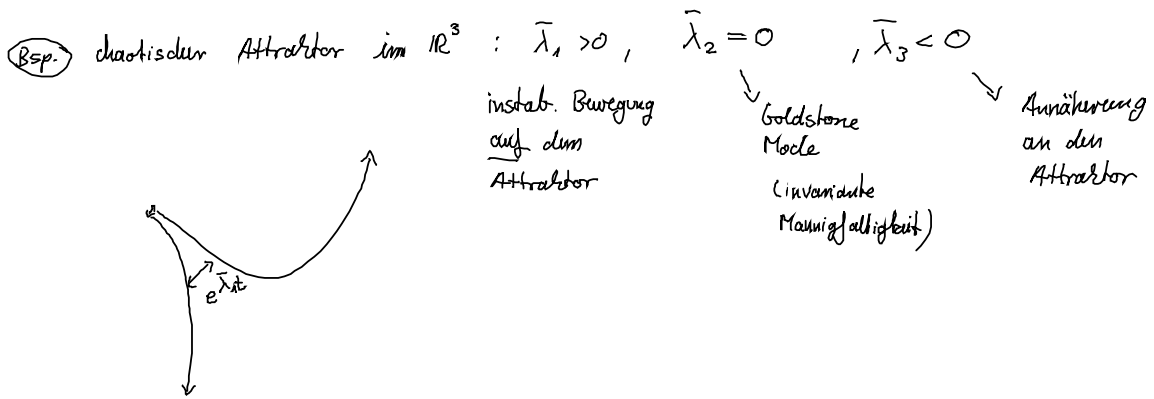 Bsp. chaotischer Attraktor im ℝ³ : λ̄₁ >0 , λ̄₂ = 0 , λ̄₃ < 0
instab. Bewegung
auf dem
Attraktor
Goldstone
Mode
(invariante
Mannigfaltigkeit)
Annäherung
an den
Attraktor
e^λ̄₁t